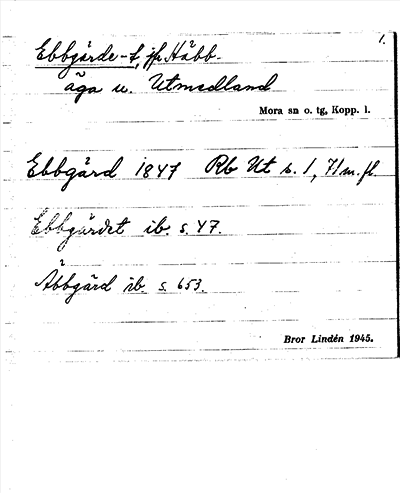 1.
Ebbgärde-t, jfr Häbb-
äga u. Utmedland
Mora sn o. tg, Kopp. l.
Ebbgård 1847 Rb Ut s. 1, 71 m. fl.
Ebbgärdet ib. s. 47.
Äbbgärd ib. s. 653.
Bror Lindén 1945.